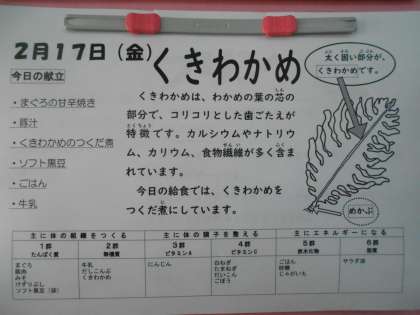 2月17日(金)
くきわかめ
太く固い部分が、
くきわかめです。
今日の献立
・まぐろの甘辛焼き
・豚汁
・くきわかめのつくだ煮
・ソフト黒豆
・ごはん
・牛乳
くきわかめは、わかめの葉の芯の
部分で、コリコリとした歯ごたえが
特徴です。カルシウムやナトリウ
ム、カリウム、食物繊維が多く含ま
れています。
今日の給食では、くきわかめを
つくだ煮にしています。
めかぶ
主に体の組織をつくる 主に体の調子を整える 主にエネルギーになる
1群 2群 3群 4群 5群 6群
たんぱく質 無機質 ビタミンA ビタミンC 炭水化物 脂質
まぐろ 牛乳 にんじん 白ねぎ ごはん サラダ油
豚肉 だしこんぶ たまねぎ 砂糖
みそ くきわかめ だいこん じゃがいも
けずりぶし ごぼう
ソフト黒豆